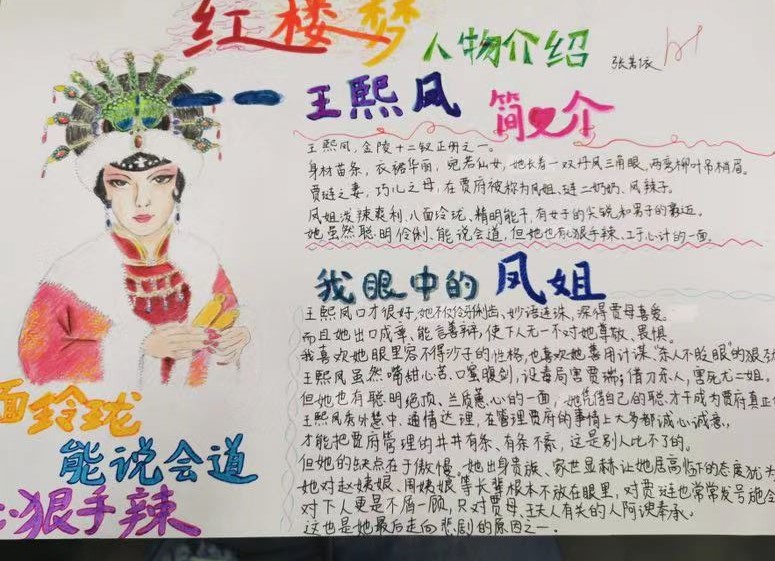 红楼梦人物介绍
张茗依
——王熙凤 简介
王熙凤，金陵十二钗正册之一。
身材苗条，衣裙华丽，宛若仙女，她长着一双丹凤三角眼，两弯柳叶吊梢眉。
贾琏之妻，巧儿之母，在贾府被称为凤姐、琏二奶奶、凤辣子。
凤姐泼辣爽利，八面玲珑、精明能干，有女子的尖锐和男子的
她虽然聪明伶俐、能说会道，但她也有心狠手辣、工于心计的一面。
我眼中的凤姐
王熙凤口才很好，她不仅伶牙俐齿、妙语连珠，深得贾母喜爱。
而且她出口成章，能言善辩，使下人无一不对她尊敬、畏惧。
我喜欢她眼里容不得沙子的性格，也喜欢她善用计谋、“杀人不眨眼”的狠
王熙凤虽然嘴甜心苦、口蜜腹剑，设毒局害贾瑞；借刀杀人，害死尤二姐。
但她也有聪明绝顶、兰质蕙心的一面，她凭借自己的聪才干成为贾府真正
王熙凤秀外慧中、通情达理，在管理贾府的事情上大多都诚心诚意，
才能把贾府管理的井井有条、有条不紊，这是别人比不了的。
但她的缺点在于傲慢。她出身贵族、家世显赫让她居高临下的态度犹为
她对赵姨娘、周姨娘等长辈根本不放在眼里，对贾琏也常常发号施令
对下人更是不屑一顾，只对贾母、王夫人有关的人阿谀奉承。
这也是她最后走向悲剧的原因之一。
面玲珑
能说会道
心狠手辣